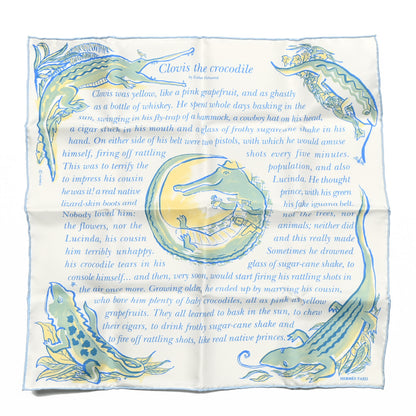 Clovis the crocodile
Clovis was yellow, like a pink grapefruit, and as ghastly
as a bottle of whiskey. He spent whole days basking in the
sun, swinging in his fly-trap of a hammock, a cowboy hat on his head,
a cigar stuck in his mouth and a glass of frothy sugar-cane shake in his
hand. On either side of his belt were two pistols, with which he would amuse
himself, firing off rattling shots every five minutes.
This was to terrify the population, and also
to impress his cousin Lucinda. He thought
he was it! a real native prince, with his green
lizard-skin boots and his fake iguana belt.
Nobody loved him: not the trees, nor
the flowers, nor the animals; neither did
Lucinda, his cousin and this really made
him terribly unhappy. Sometimes he drowned
his crocodile tears in his glass of sugar-cane shake, to
console himself... and then, very soon, would start firing his rattling shots in
the air once more. Growing older, he ended up by marrying his cousin,
who bore him plenty of baby crocodiles, all as pink as yellow
grapefruits. They all learned to bask in the sun, to chew
their cigars, to drink frothy sugar-cane shake and
to fire off rattling shots, like real native princes.
HERMES-PARIS